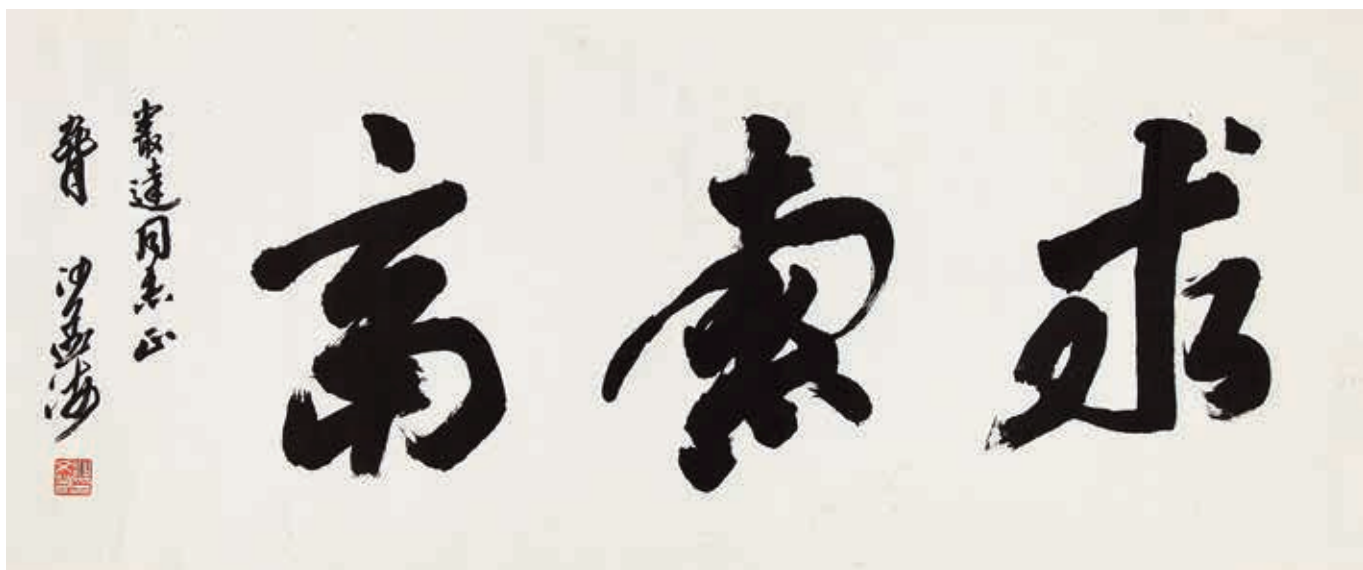 求索斋
叢達同志正
聾 沙孟海